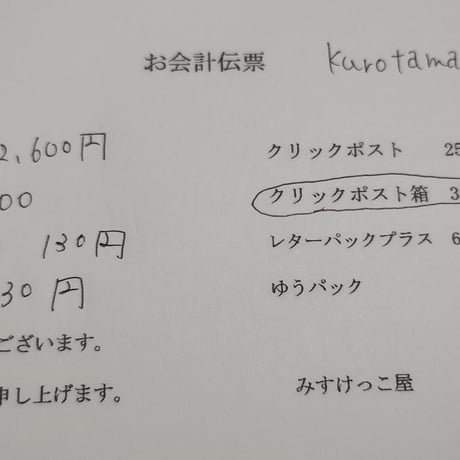 お会計伝票 kurotama
2,600円
クリックポスト 25
00
クリックポスト箱 3
130円
レターパックプラス 6
30円
ゆうパック
ございます。
申し上げます。
みすけっこ屋